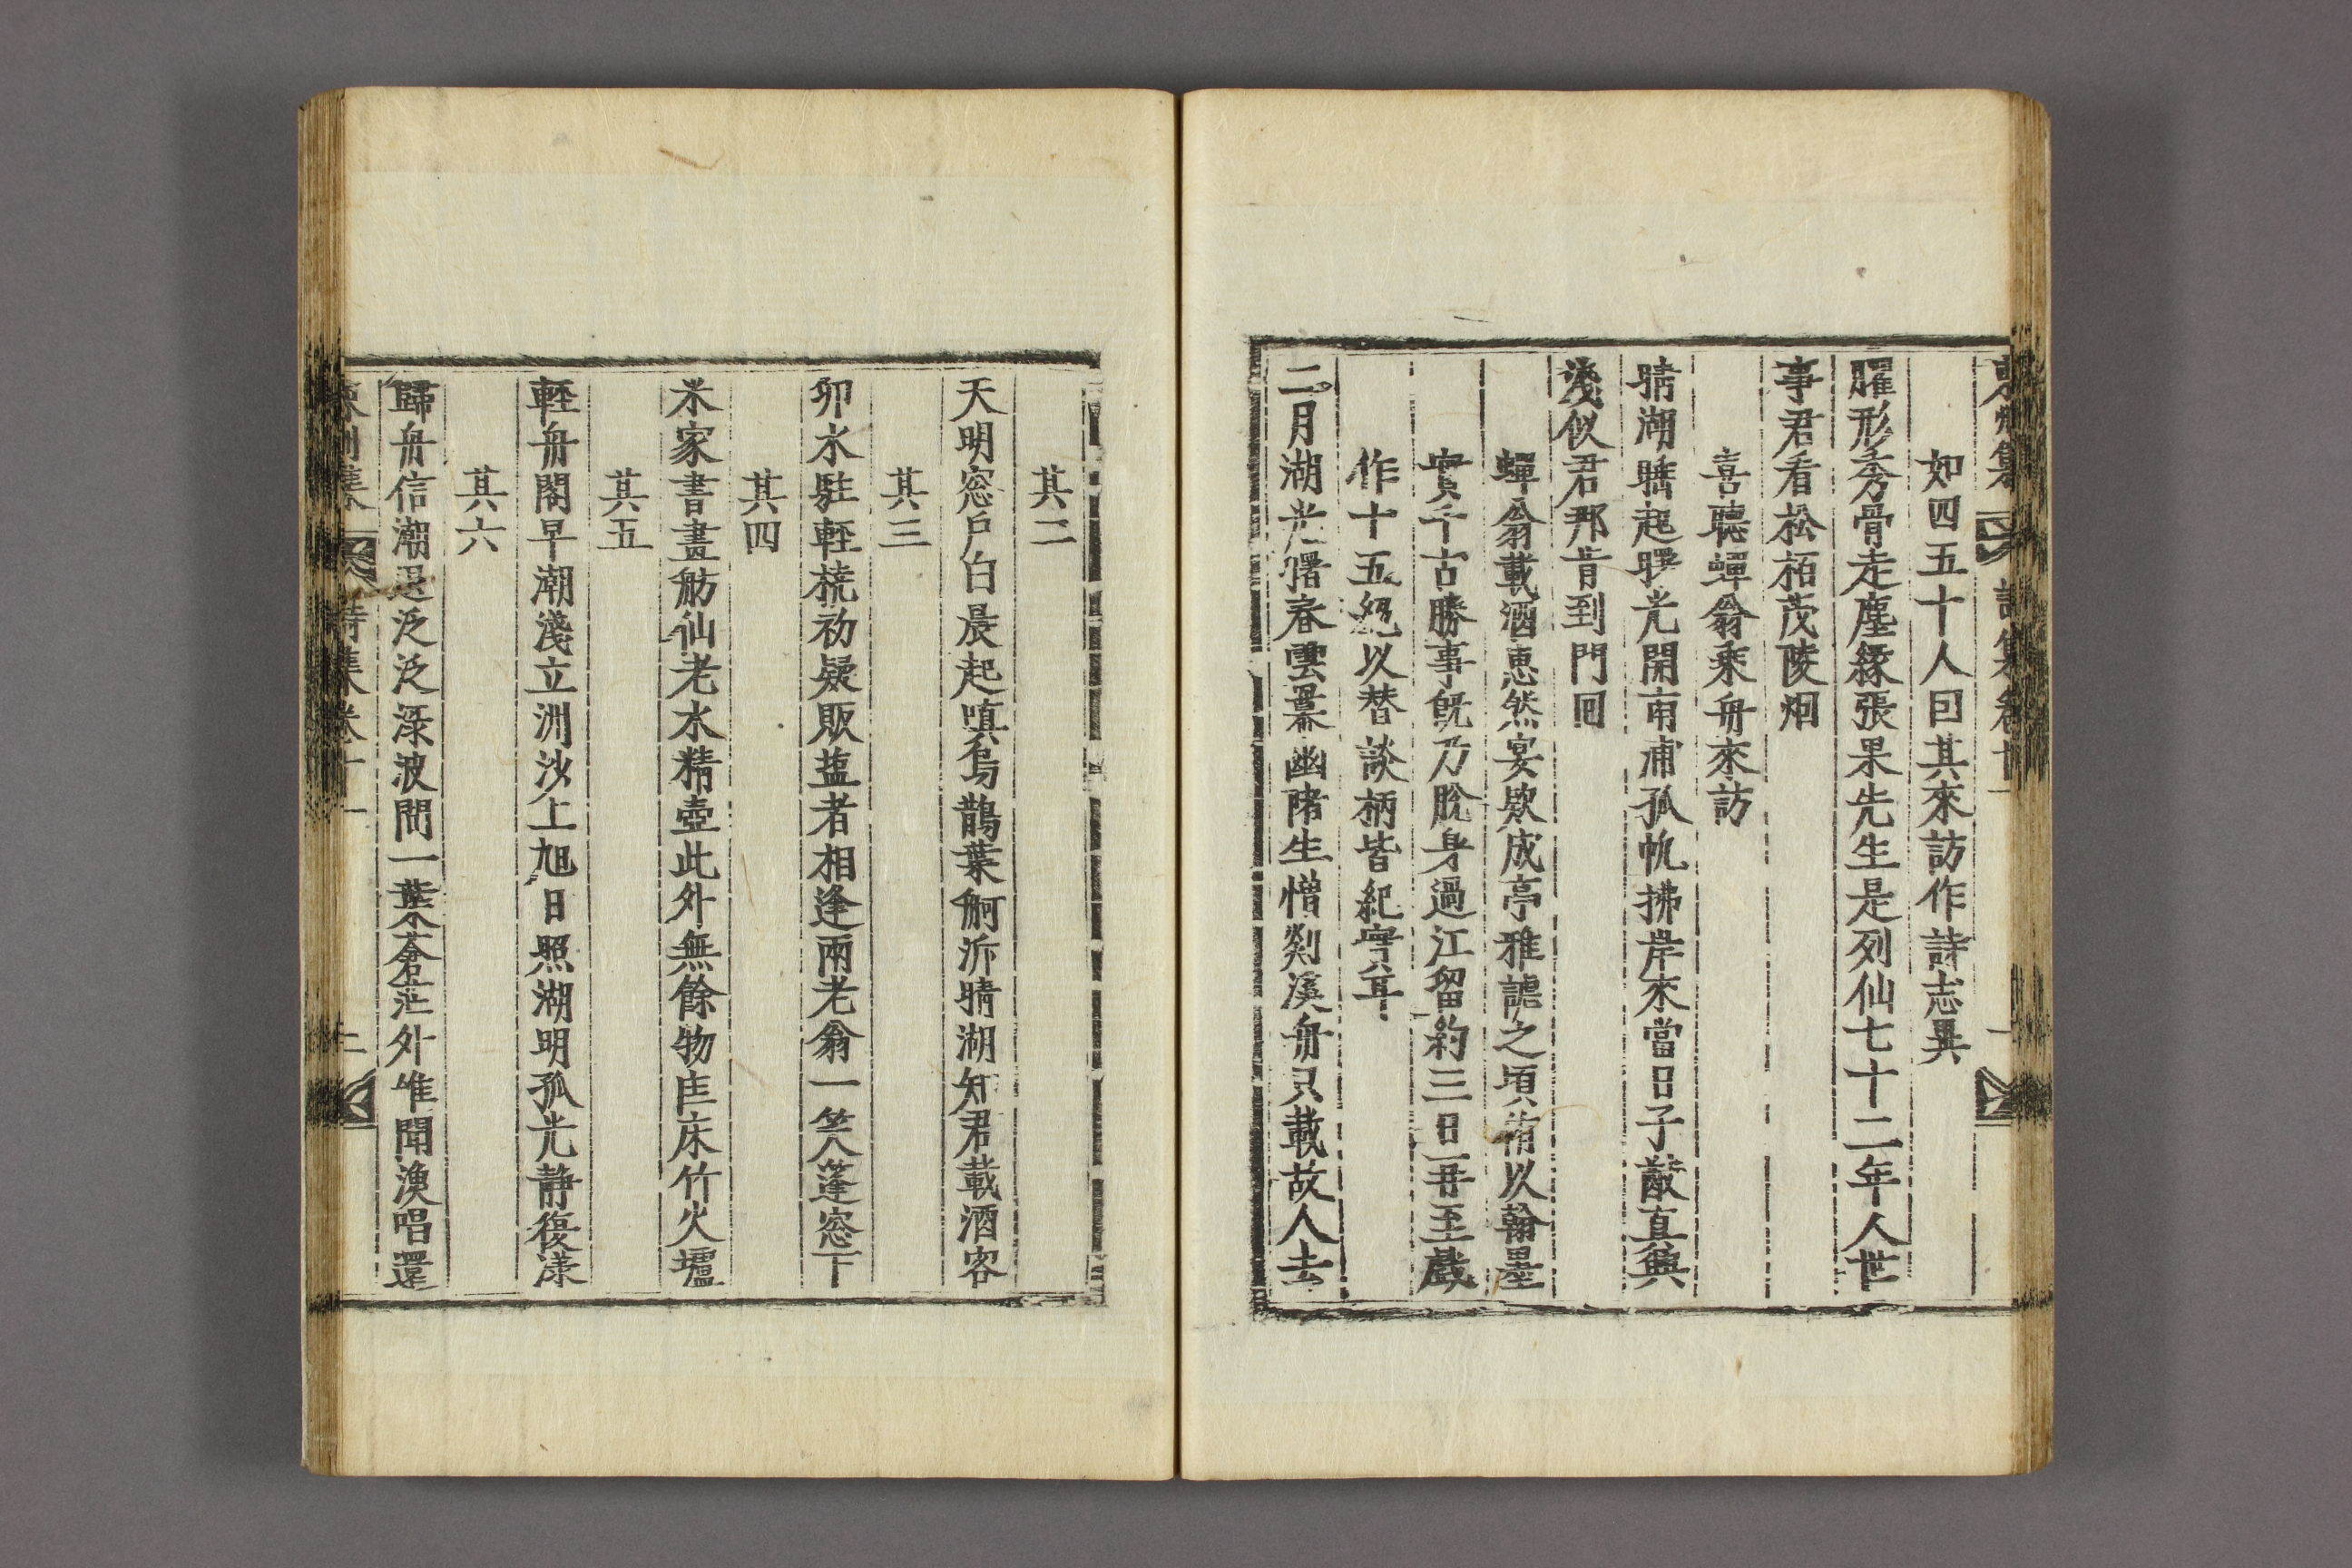 如四五十人曰其來訪作詩志異
臞形秀骨走塵緣張果先生是列仙七十二年人世
事君看松栢茂陵烟
喜聽蟬翁乘舟來訪
晴湖睡起曙光開南浦孤帆拂岸來當日子猷真興
淺似君那肯到門回
蟬翁載酒惠然宴欵成亭雅謔之頃侑以翰墨
實千古勝事旣乃脫身過江留約三日一再至戱
作十五絕以替談柄皆紀實耳
二月湖光曙春雲羃幽陼生憎剡溪舟只載故人去
其二
天明窓戶白晨起嗔烏鵲葉舸泝晴湖知君載酒客
其三
卯水駐輕橈初疑販塩者相逢兩老翁一笑蓬窓下
其四
米家書畫舫仙老水精壺此外無餘物匡床竹火壚
其五
輕舟閣早潮淺立洲沙上旭日照湖明孤光靜復漾
其六
歸舟信潮退泛泛渌波間一葉蒼茫外唯聞漁唱還
詩集卷十一